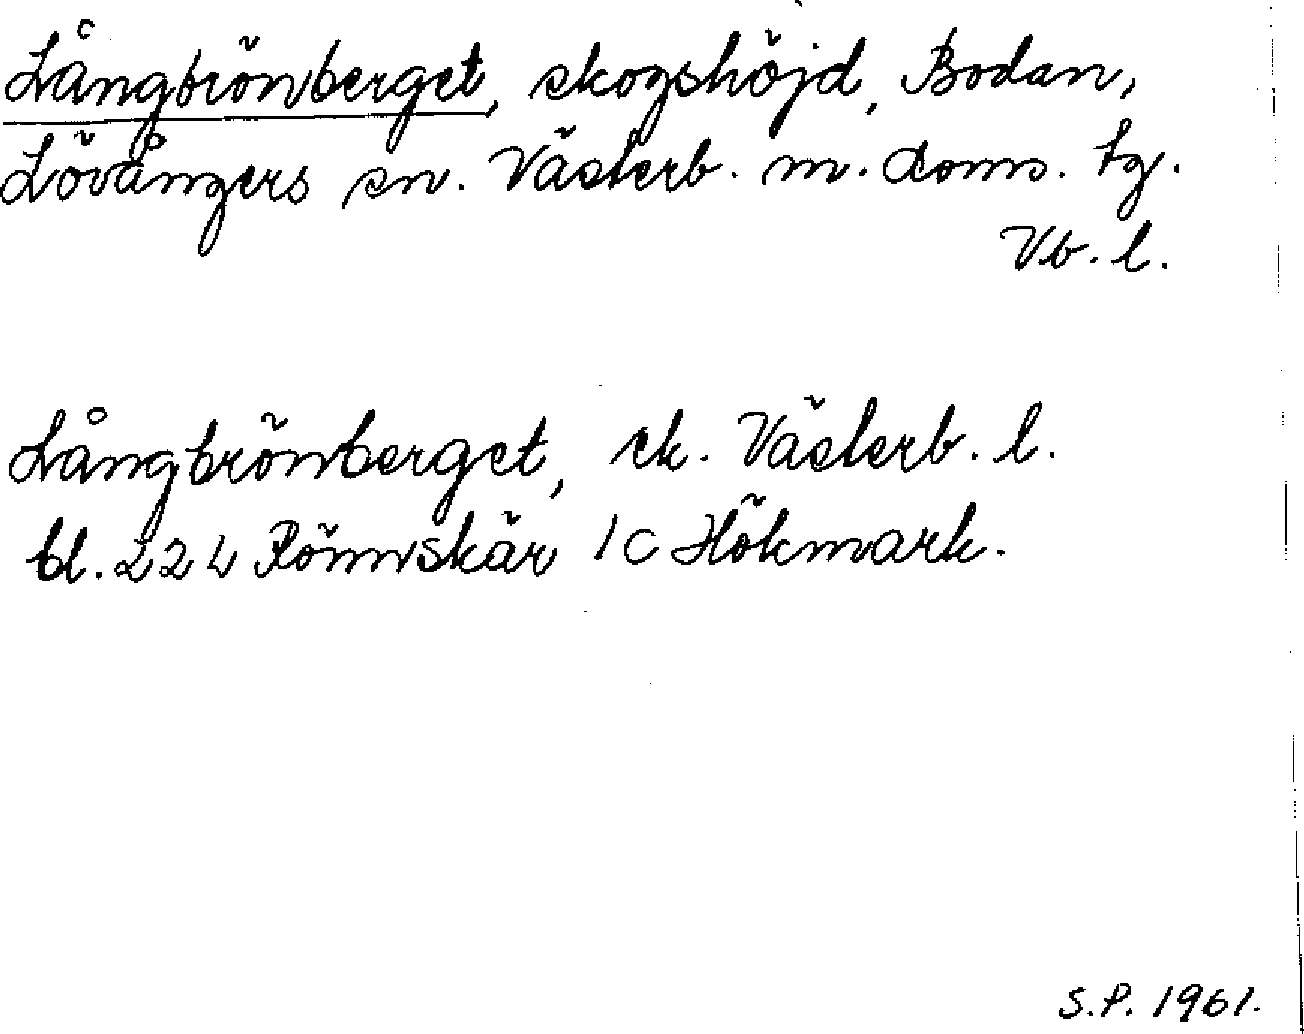 Långbrönberget, skogshöjd, Bodan,
Lövångers sn. Västerb. m. doms. tg.
Vb. l.
Långbrönberget, ek. Västerb. l.
bl. 22 L Rönnskär 1C Hökmark.
S.P. 1961.